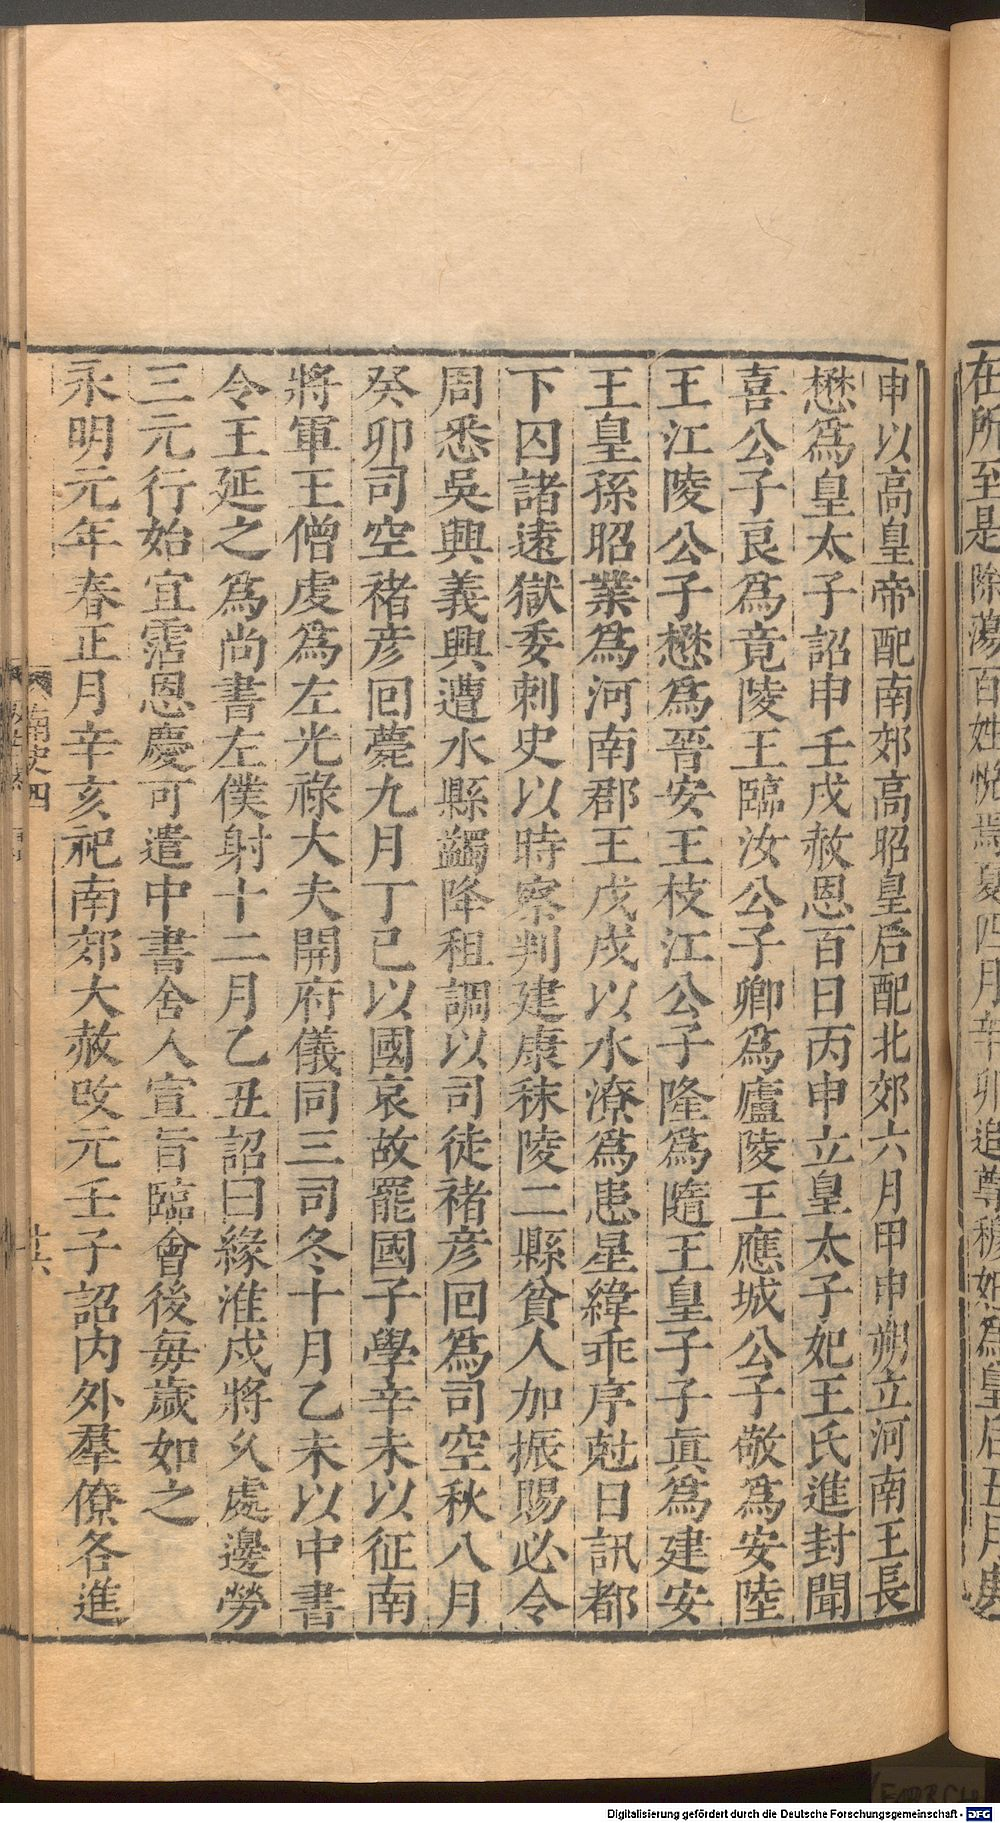 在所至是除蕩百姓悅焉夏四月辛卯追尊穆妃爲皇后五月庚
申以高皇帝配南郊高昭皇后配北郊六月甲申朔立河南王長
懋爲皇太子詔申壬戌赦恩百日丙申立皇太子妃王氏進封聞
喜公子良爲竟陵王臨汝公子卿爲廬陵王應城公子敬爲安陸
王江陵公子懋爲晉安王枝江公子隆爲隨王皇子子眞爲建安
王皇孫昭業爲河南郡王戊戌以水潦爲患星緯乖序尅日訊都
下囚諸遠獄委刺史以時察判建康秣陵二縣貧人加振賜必令
周悉吳興義興遭水縣蠲降租調以司徒褚彦回爲司空秋八月
癸卯司空褚彦回薨九月丁巳以國哀故罷國子學辛未以征南
將軍王僧虔爲左光祿大夫開府儀同三司冬十月乙未以中書
令王延之爲尚書左僕射十二月乙丑詔曰緣淮戍將久處邊勞
三元行始宜霑恩慶可遣中書舍人宣旨臨會後每歲如之
永明元年春正月辛亥祀南郊大赦改元壬子詔内外羣僚各進
南史四
廿六
Digitalisierung gefördert durch die Deutsche Forschungsgemeinschaft - DFG